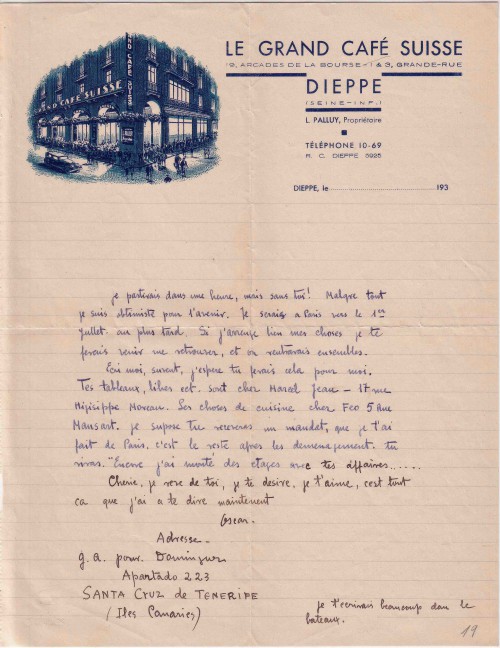 GRAND CAFÉ SUISSE
LE GRAND CAFÉ SUISSE
19, ARCADES DE LA BOURSE - 1 & 3, GRANDE-RUE
DIEPPE
(SEINE-INF.)
L. PALLUY, Propriétaire
TÉLÉPHONE 10-69
R. C. DIEPPE 5925
DIEPPE, le 193
je partirais dans une heure, mais sans toi! Malgre tout
je suis obtimiste pour l'avenir. Je serais a Paris vers le 1er
jullet au plus tard. Si j'arrenge bien mes choses je te
ferais venir me retrouver, et on rentrairais ensembles.
Ecri moi, suvent, j'espere tu ferais cela pour moi.
Tes tableaux, libres ect. sont cher Marcel Jean - 17 rue
Hégésippe Moreau. Les choses de cuisine cher Fco 5 Rue
Mansart. je supose tu receveras un mandet, que je t'ai
fait de Paris. c'est le reste apres les demenagement. tu
riras. "Encore j'ai monté des etages avec tes affaires......
Cherie, je reve de toi, je te desire, je t'aime, c'est tout
ca que j'ai a te dire maintenent
Oscar.
Adresse.
g.a. pour. Dominguez
Apartado 223
SANTA CRUZ de TENERIFE
(Iles Canaries)
je t'ecrirais beaucoup dan le
bateaux.
19